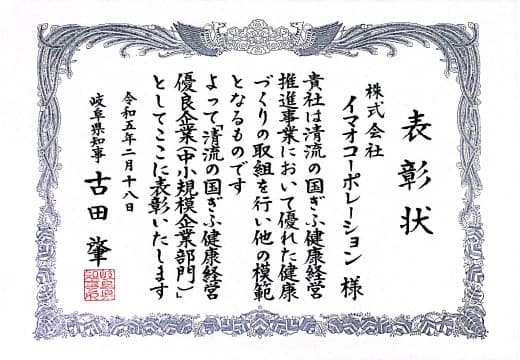 表彰状
株式会社
イマオコーポレーション 様
貴社は清流の国ぎふ健康経営
推進事業において優れた健康
づくりの取組を行い他の模範
となるものです
よって「清流の国ぎふ健康経営
優良企業(中小規模企業部門)」
としてここに表彰いたします
令和五年二月十八日
岐阜県知事 古田 肇